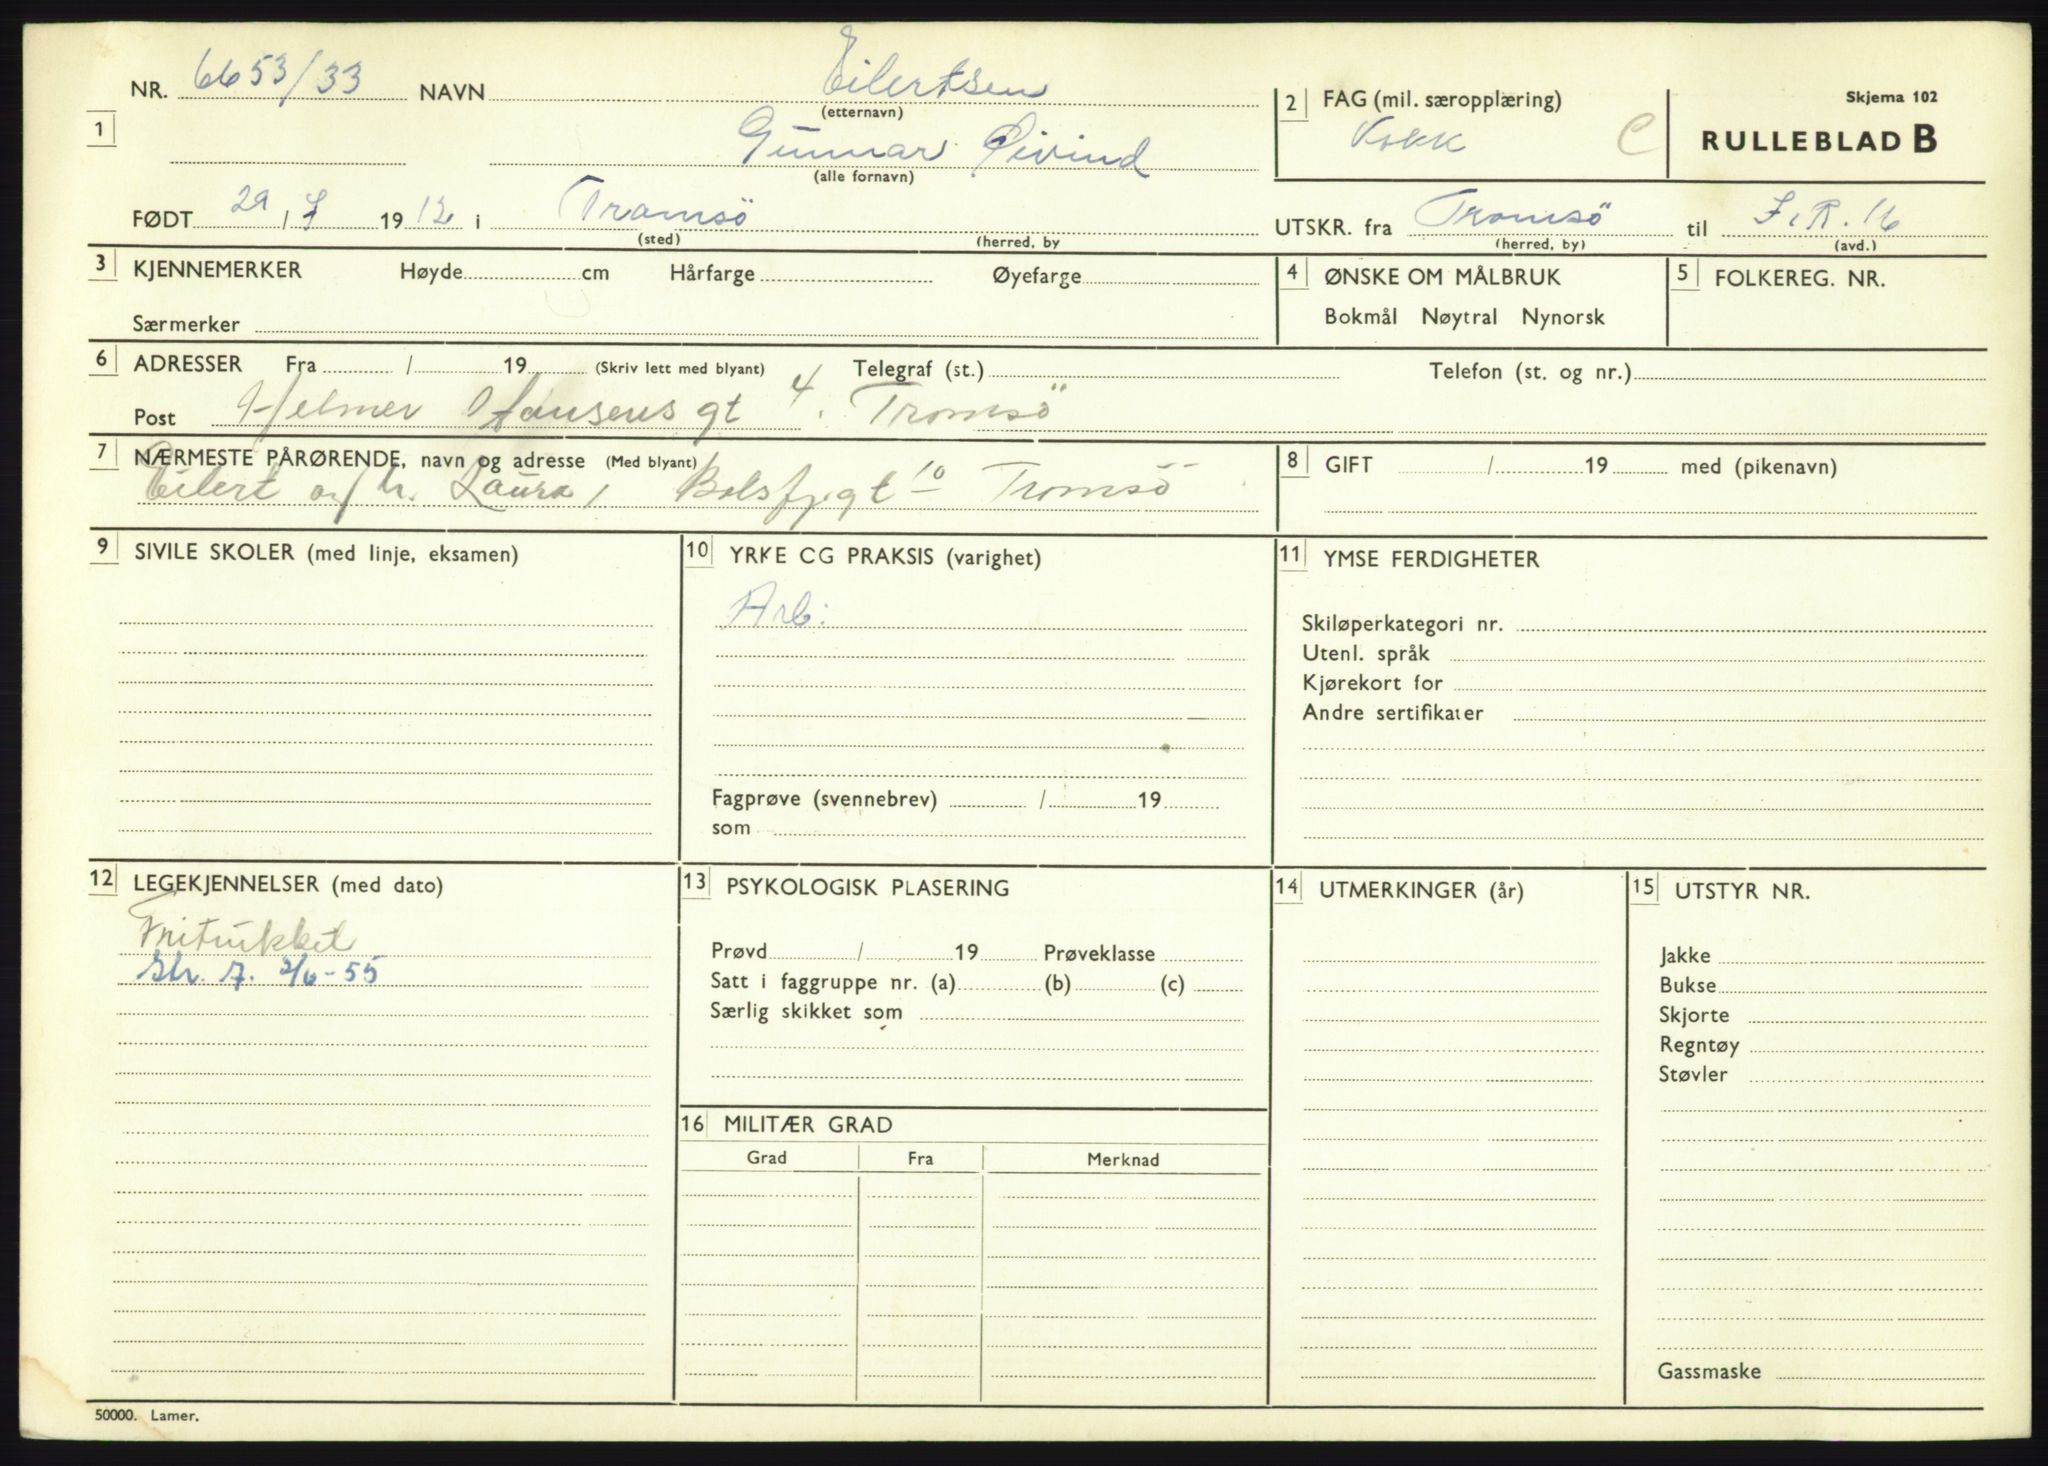 NR. 6653/33 NAVN Eilertsen
(etternavn)
2 FAG (mil. særopplæring)
Skjema 102
1
Gunnar Øivind
(alle fornavn)
Kokk C
RULLEBLAD B
FØDT 29 / 7 1912 i Tromsö
(sted) (herred, by
UTSKR. fra Tromsö til I.R. 16
(herred, by) (avd.)
3 KJENNEMERKER Høyde cm Hårfarge Øyefarge
Særmerker
4 ØNSKE OM MÅLBRUK
Bokmål Nøytral Nynorsk
5 FOLKEREG. NR.
6 ADRESSER Fra / 19 (Skriv lett med blyant) Telegraf (st.) Telefon (st. og nr.)
Post Helmer Hansens gt 4. Tromsö
7 NÆRMESTE PÅRØRENDE, navn og adresse (Med blyant)
Eilert og hr. Laura, Balsfjgt 10 Tromsö
8 GIFT / 19 med (pikenavn)
9 SIVILE SKOLER (med linje, eksamen)
10 YRKE CG PRAKSIS (varighet)
Arb:
Fagprøve (svennebrev) / 19
som
11 YMSE FERDIGHETER
Skiløperkategori nr.
Utenl. språk
Kjørekort for
Andre sertifikater
12 LEGEKJENNELSER (med dato)
Str. 7. 2/6-55
13 PSYKOLOGISK PLASERING
Prøvd / 19 Prøveklasse
Satt i faggruppe nr. (a) (b) (c)
Særlig skikket som
14 UTMERKINGER (år)
15 UTSTYR NR.
Jakke
Bukse
Skjorte
Regntøy
Støvler
Gassmaske
16 MILITÆR GRAD
Grad Fra Merknad
50000. Lamer.